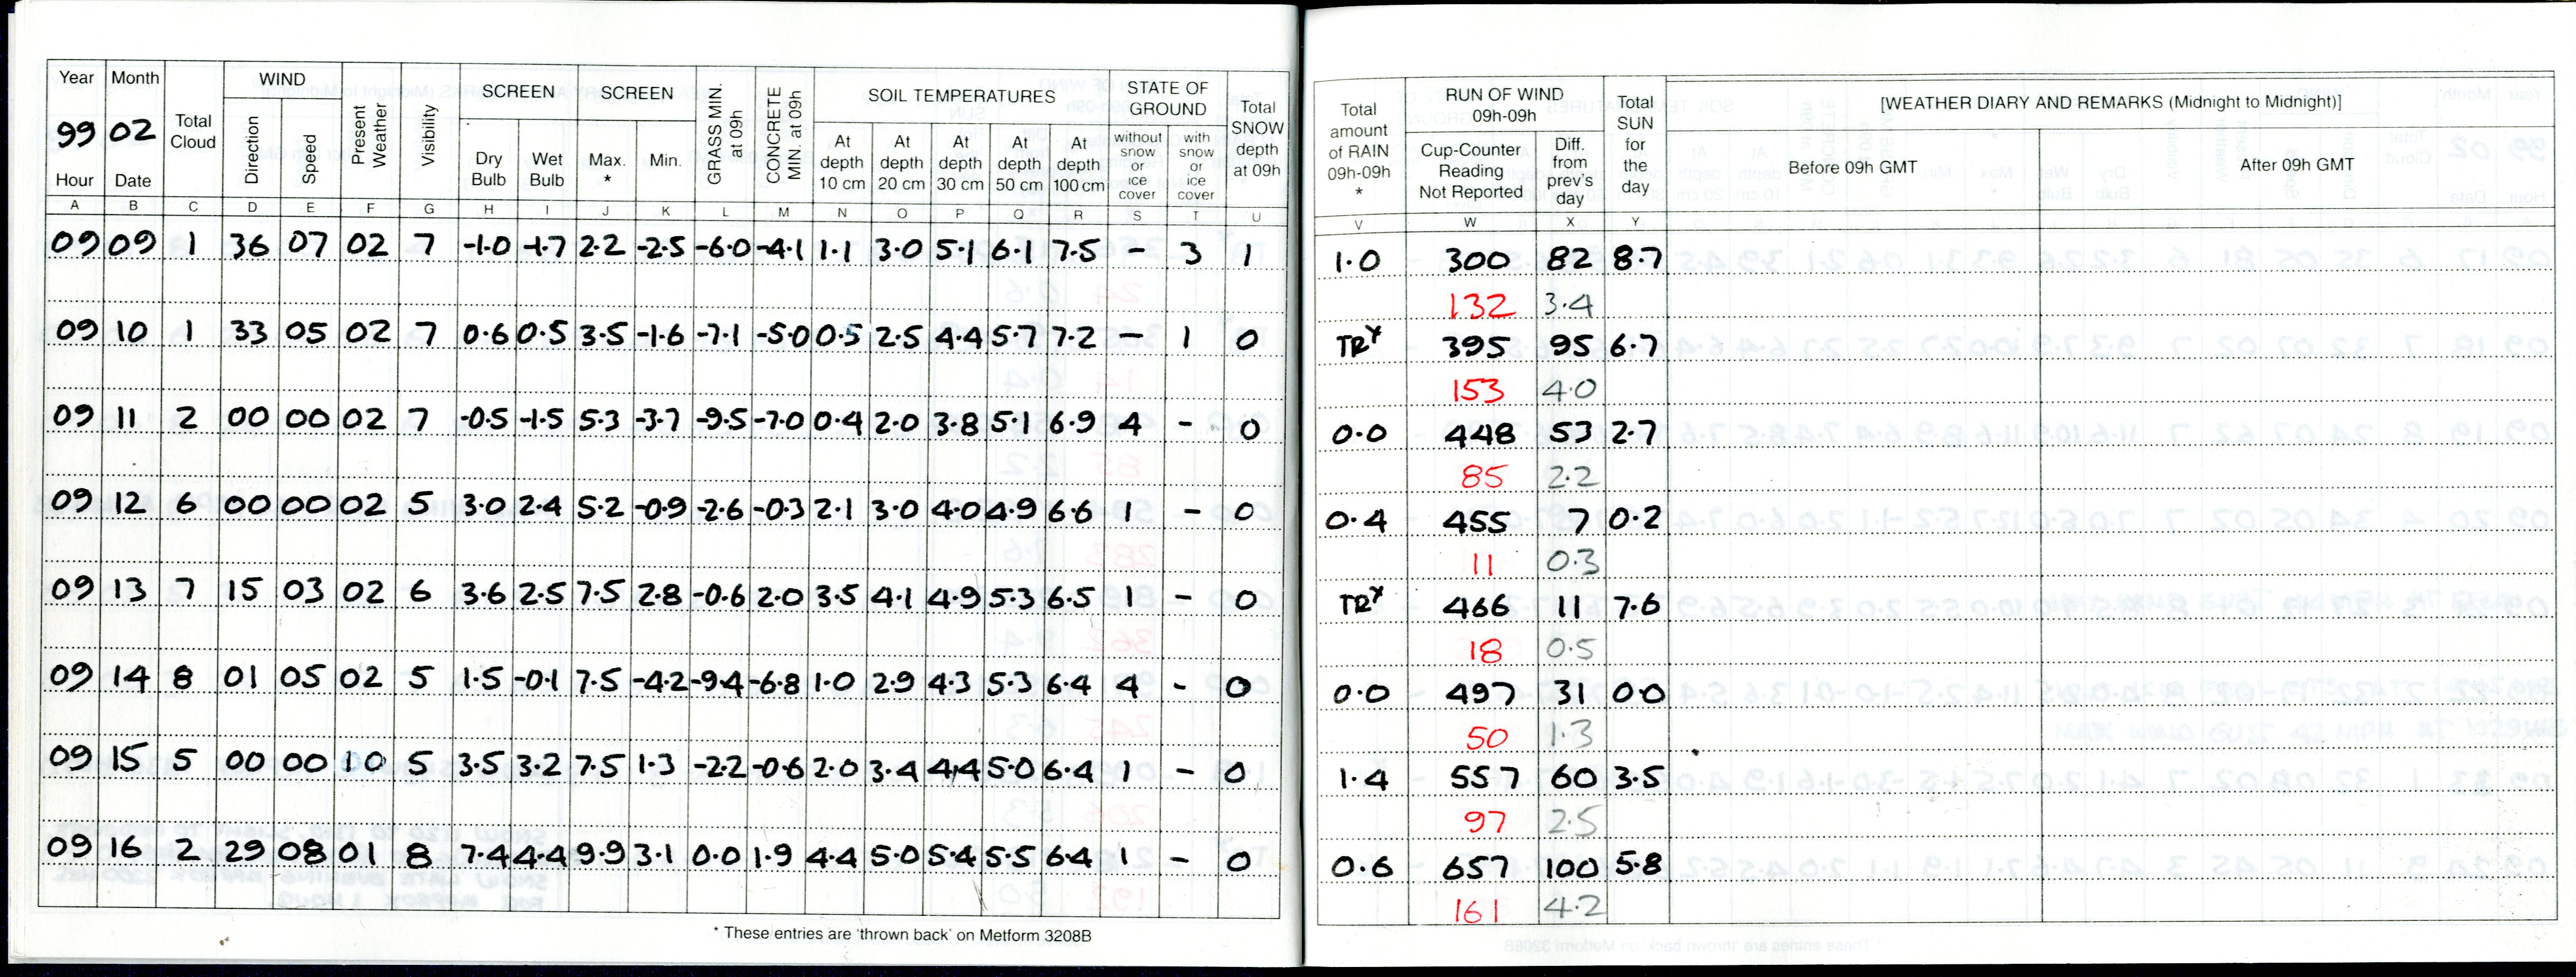 Year Month Total Cloud WIND Present Weather Visibility SCREEN SCREEN GRASS MIN. at 09h CONCRETE MIN. at 09h SOIL TEMPERATURES STATE OF GROUND Total SNOW depth at 09h
99 02
Hour Date Direction Speed Dry Bulb Wet Bulb Max. * Min. At depth 10 cm At depth 20 cm At depth 30 cm At depth 50 cm At depth 100 cm without snow or ice cover with snow or ice cover
A B C D E F G H I J K L M N O P Q R S T U
09 09 1 36 07 02 7 -1.0 -1.7 2.2 -2.5 -6.0 -4.1 1.1 3.0 5.1 6.1 7.5 - 3 1
09 10 1 33 05 02 7 0.6 0.5 3.5 -1.6 -7.1 -5.0 0.5 2.5 4.4 5.7 7.2 - 1 0
09 11 2 00 00 02 7 -0.5 -1.5 5.3 -3.7 -9.5 -7.0 0.4 2.0 3.8 5.1 6.9 4 - 0
09 12 6 00 00 02 5 3.0 2.4 5.2 -0.9 -2.6 -0.3 2.1 3.0 4.0 4.9 6.6 1 - 0
09 13 7 15 03 02 6 3.6 2.5 7.5 2.8 -0.6 2.0 3.5 4.1 4.9 5.3 6.5 1 - 0
09 14 8 01 05 02 5 1.5 -0.1 7.5 -4.2 -9.4 -6.8 1.0 2.9 4.3 5.3 6.4 4 - 0
09 15 5 00 00 10 5 3.5 3.2 7.5 1.3 -2.2 -0.6 2.0 3.4 4.4 5.0 6.4 1 - 0
09 16 2 29 08 01 8 7.4 4.4 9.9 3.1 0.0 1.9 4.4 5.0 5.4 5.5 6.4 1 - 0
* These entries are 'thrown back' on Metform 3208B
Total amount of RAIN 09h-09h * RUN OF WIND 09h-09h Total SUN for the day [WEATHER DIARY AND REMARKS (Midnight to Midnight)]
Cup-Counter Reading Not Reported Diff. from prev's day Before 09h GMT After 09h GMT
V W X Y
1.0 300 82 8.7
132 3.4
TR 395 95 6.7
153 4.0
0.0 448 53 2.7
85 2.2
0.4 455 7 0.2
11 0.3
TR 466 11 7.6
18 0.5
0.0 497 31 0.0
50 1.3
1.4 557 60 3.5
97 2.5
0.6 657 100 5.8
161 4.2